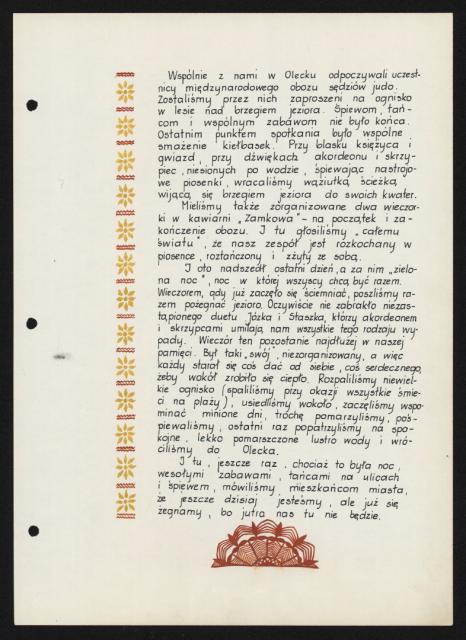 Wspólnie z nami w Olecku odpoczywali uczest-
nicy międzynarodowego obozu sędziów judo.
Zostaliśmy przez nich zaproszeni na ognisko
w lesie nad brzegiem jeziora. Śpiewom, tań-
com i wspólnym zabawom nie było końca.
Ostatnim punktem spotkania było wspólne
smażenie kiełbasek. Przy blasku księżyca i
gwiazd, przy dźwiękach akordeonu i skrzy-
piec, niesionych po wodzie, śpiewając nastrojo-
we piosenki, wracaliśmy wąziutką ścieżką,
wijącą się brzegiem jeziora do swoich kwater.
Mieliśmy także zorganizowane dwa wieczor-
ki w kawiarni „Zamkowa" - na początek i za-
kończenie obozu. I tu głosiliśmy „całemu
światu", że nasz zespół jest rozkochany w
piosence, roztańczony i zżyty ze sobą.
I oto nadszedł ostatni dzień, a za nim „zielo-
na noc", noc w której wszyscy chcą być razem.
Wieczorem, gdy już zaczęło się ściemniać, poszliśmy ra-
zem pożegnać jezioro. Oczywiście nie zabrakło niezas-
tąpionego duetu Józka i Staszka, którzy akordeonem
i skrzypcami umilają nam wszystkie tego rodzaju wy-
pady. Wieczór ten pozostanie najdłużej w naszej
pamięci. Był taki „swój", niezorganizowany, a więc
każdy starał się coś dać od siebie, coś serdecznego,
żeby wokół zrobiło się ciepło. Rozpaliliśmy niewiel-
kie ognisko (spaliliśmy przy okazji wszystkie śmie-
ci na plaży), usiedliśmy wokoło, zaczęliśmy wspo-
minać minione dni, trochę pomarzyliśmy, poś-
piewaliśmy, ostatni raz popatrzyliśmy na spo-
kojne, lekko pomarszczone lustro wody i wró-
ciliśmy do Olecka.
I tu, jeszcze raz, chociaż to była noc,
wesołymi zabawami, tańcami na ulicach
i śpiewem, mówiliśmy mieszkańcom miasta,
że jeszcze dzisiaj jesteśmy, ale już się
żegnamy, bo jutra nas tu nie będzie.